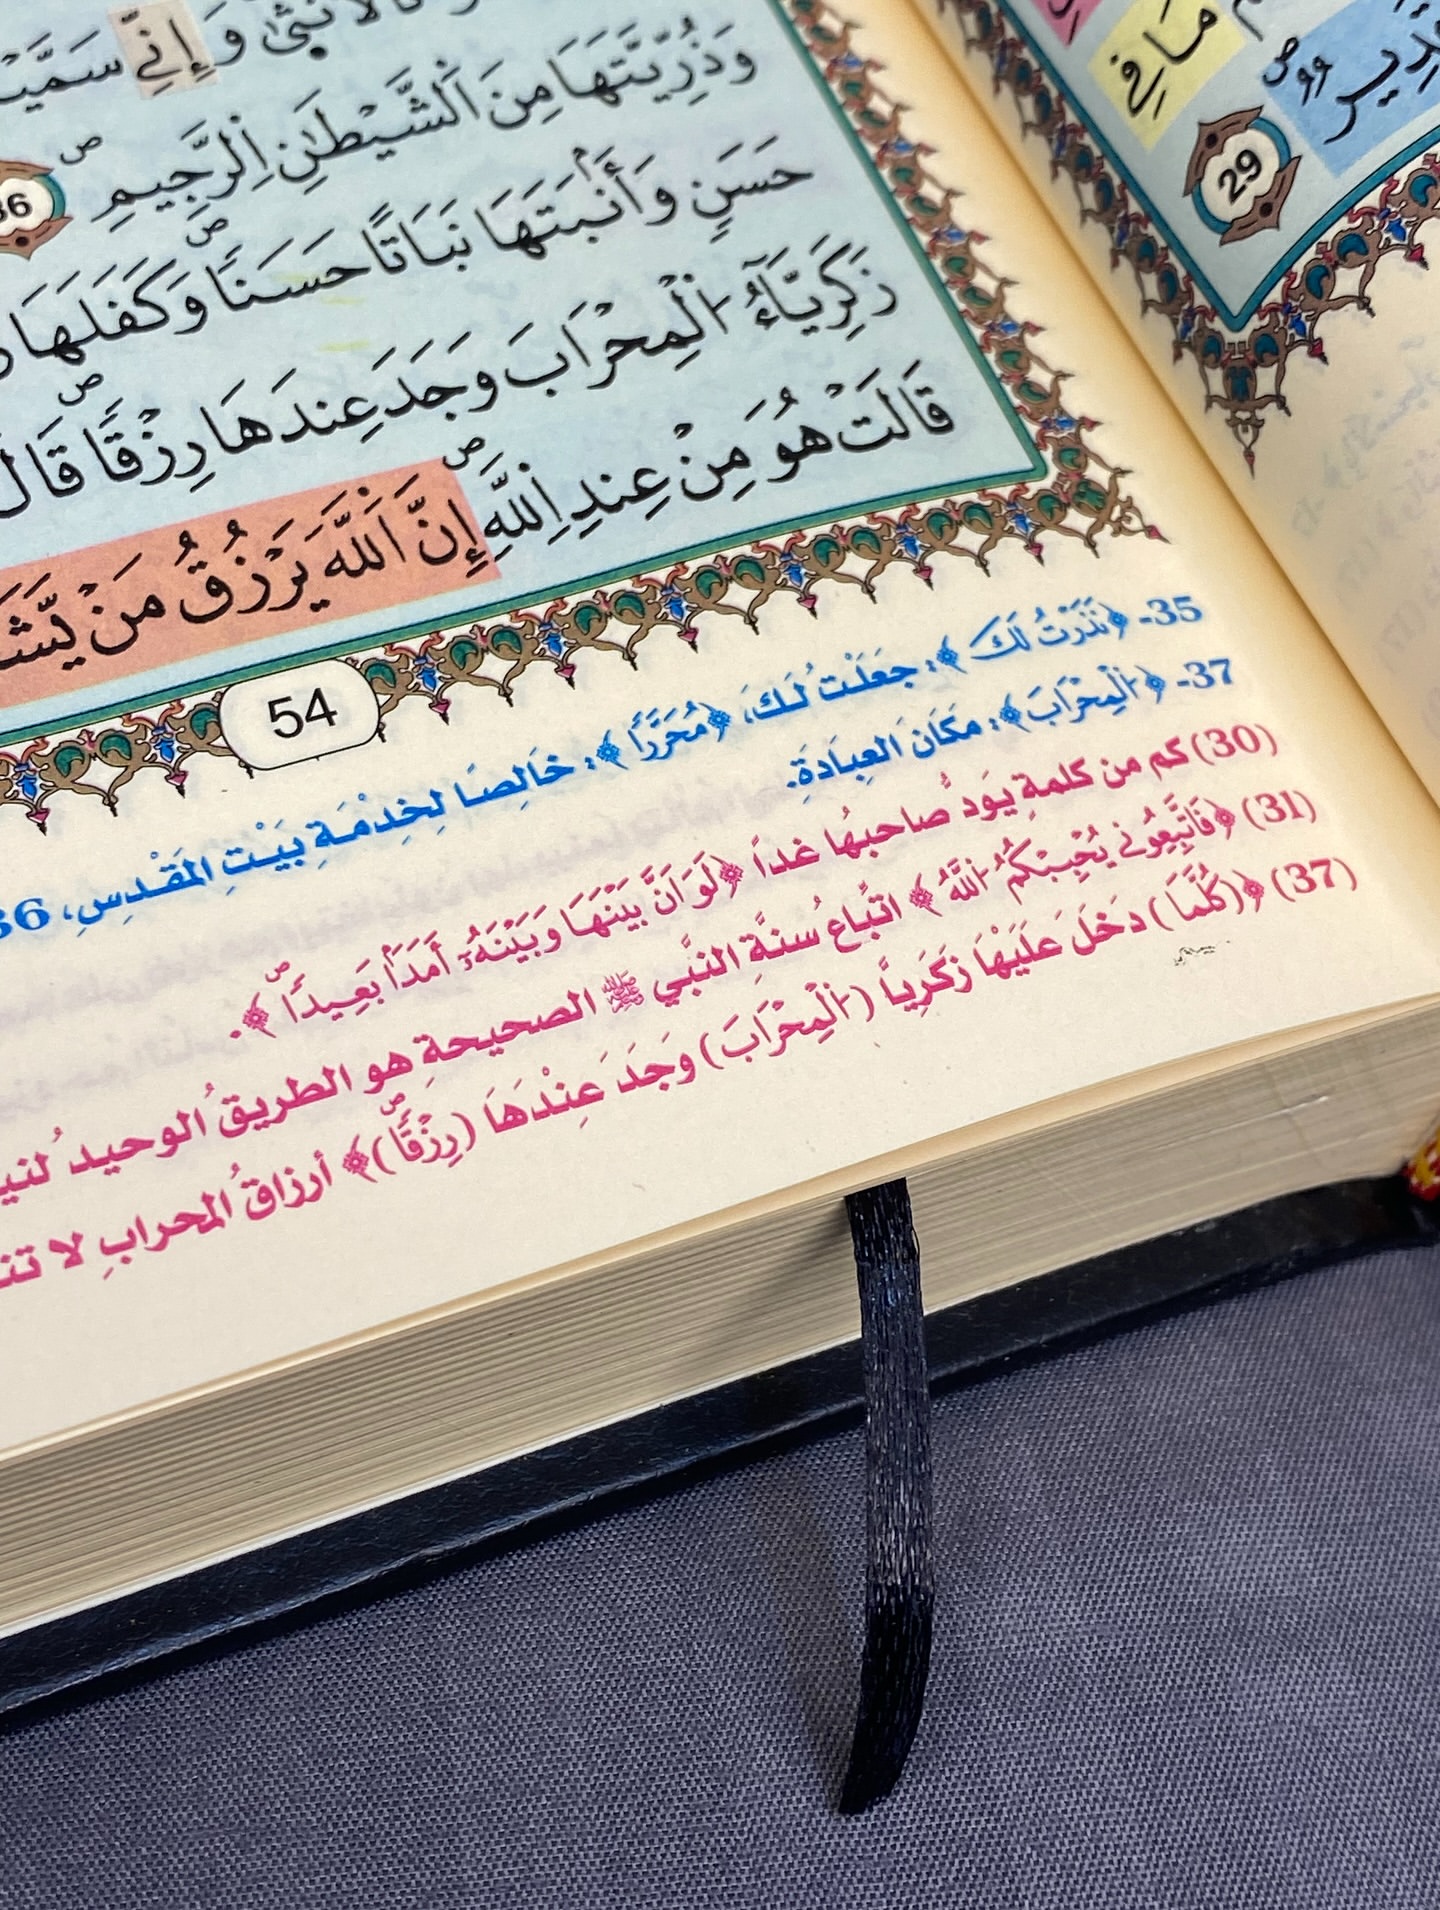 مَا فِي
29
وَإِنِّي
وَذُرِّيَّتَهَا مِنَ اَ۬لشَّيْطَٰنِ اِ۬لرَّجِيمِۖ 36
حَسَنٖ وَأَنۢبَتَهَا نَبَاتًا حَسَنٗاۖ وَكَفَلَهَا
زَكَرِيَّآءُ اُ۬لْمِحْرَابَ وَجَدَ عِندَهَا رِزْقٗاۖ قَالَ
قَالَتْ هُوَ مِنْ عِندِ اِ۬للَّهِۖ إِنَّ اَ۬للَّهَ يَرْزُقُ مَنْ يَّشَ
54
35- ﴿نَذَرْتُ لَكَ﴾: جعَلْتُ لَكَ، ﴿مُحَرَّرٗا﴾: خَالِصًا لخِدْمَةِ بَيْتِ المَقْدِسِ، 36
37- ﴿اَ۬لْمِحْرَابَ﴾: مَكَانَ العِبَادَةِ.
(30) كم من كلمةٍ يَودُّ صاحبُها غداً ﴿لَوَ اَنَّ بَيْنَهَا وَبَيْنَهُۥٓ أَمَدَۢا بَعِيدٗاۖ﴾.
(31) ﴿فَاتَّبِعُونِے يُحْبِبْكُمُ اُ۬للَّهُ﴾ اتِّباعُ سنةِ النبَّي ﷺ الصحيحةِ هو الطريقُ الوحيدُ لني
(37) ﴿(كُلَّمَا) دَخَلَ عَلَيْهَا زَكَرِيَّا (اُ۬لْمِحْرَابَ) وَجَدَ عِنْدَهَا (رِزْقٗاۖ)﴾ أرزاقُ المحرابِ لا تن